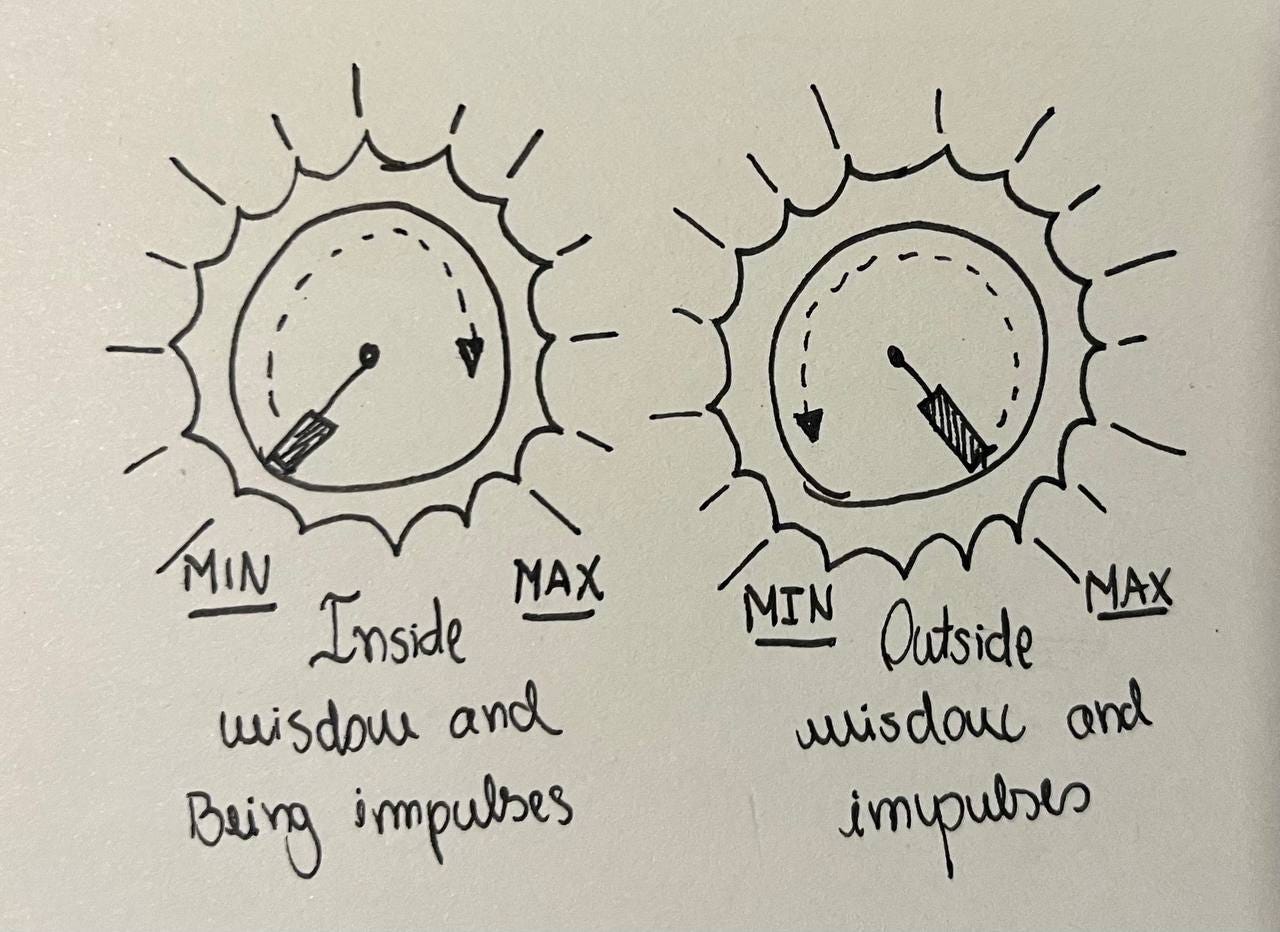 MIN MAX
Inside
wisdom and
Being impulses
MIN MAX
Outside
wisdom and
impulses